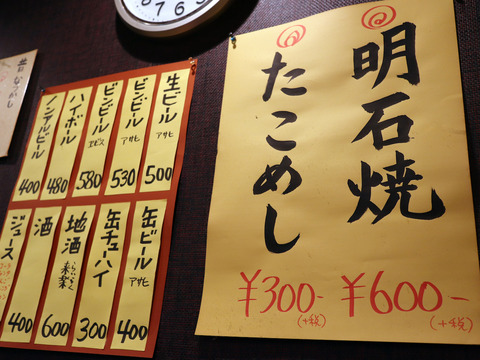 明石焼
¥600-
(+税)
たこめし
¥300-
(+税)
生ビール アサヒ 500
ビンビール アサヒ 530
ビンビール エビス 580
ハイボール 480
ノンアルビール 400
缶ビール アサヒ 400
缶チューハイ 300
地酒 らいらく 来楽 600
酒
ジュース 400